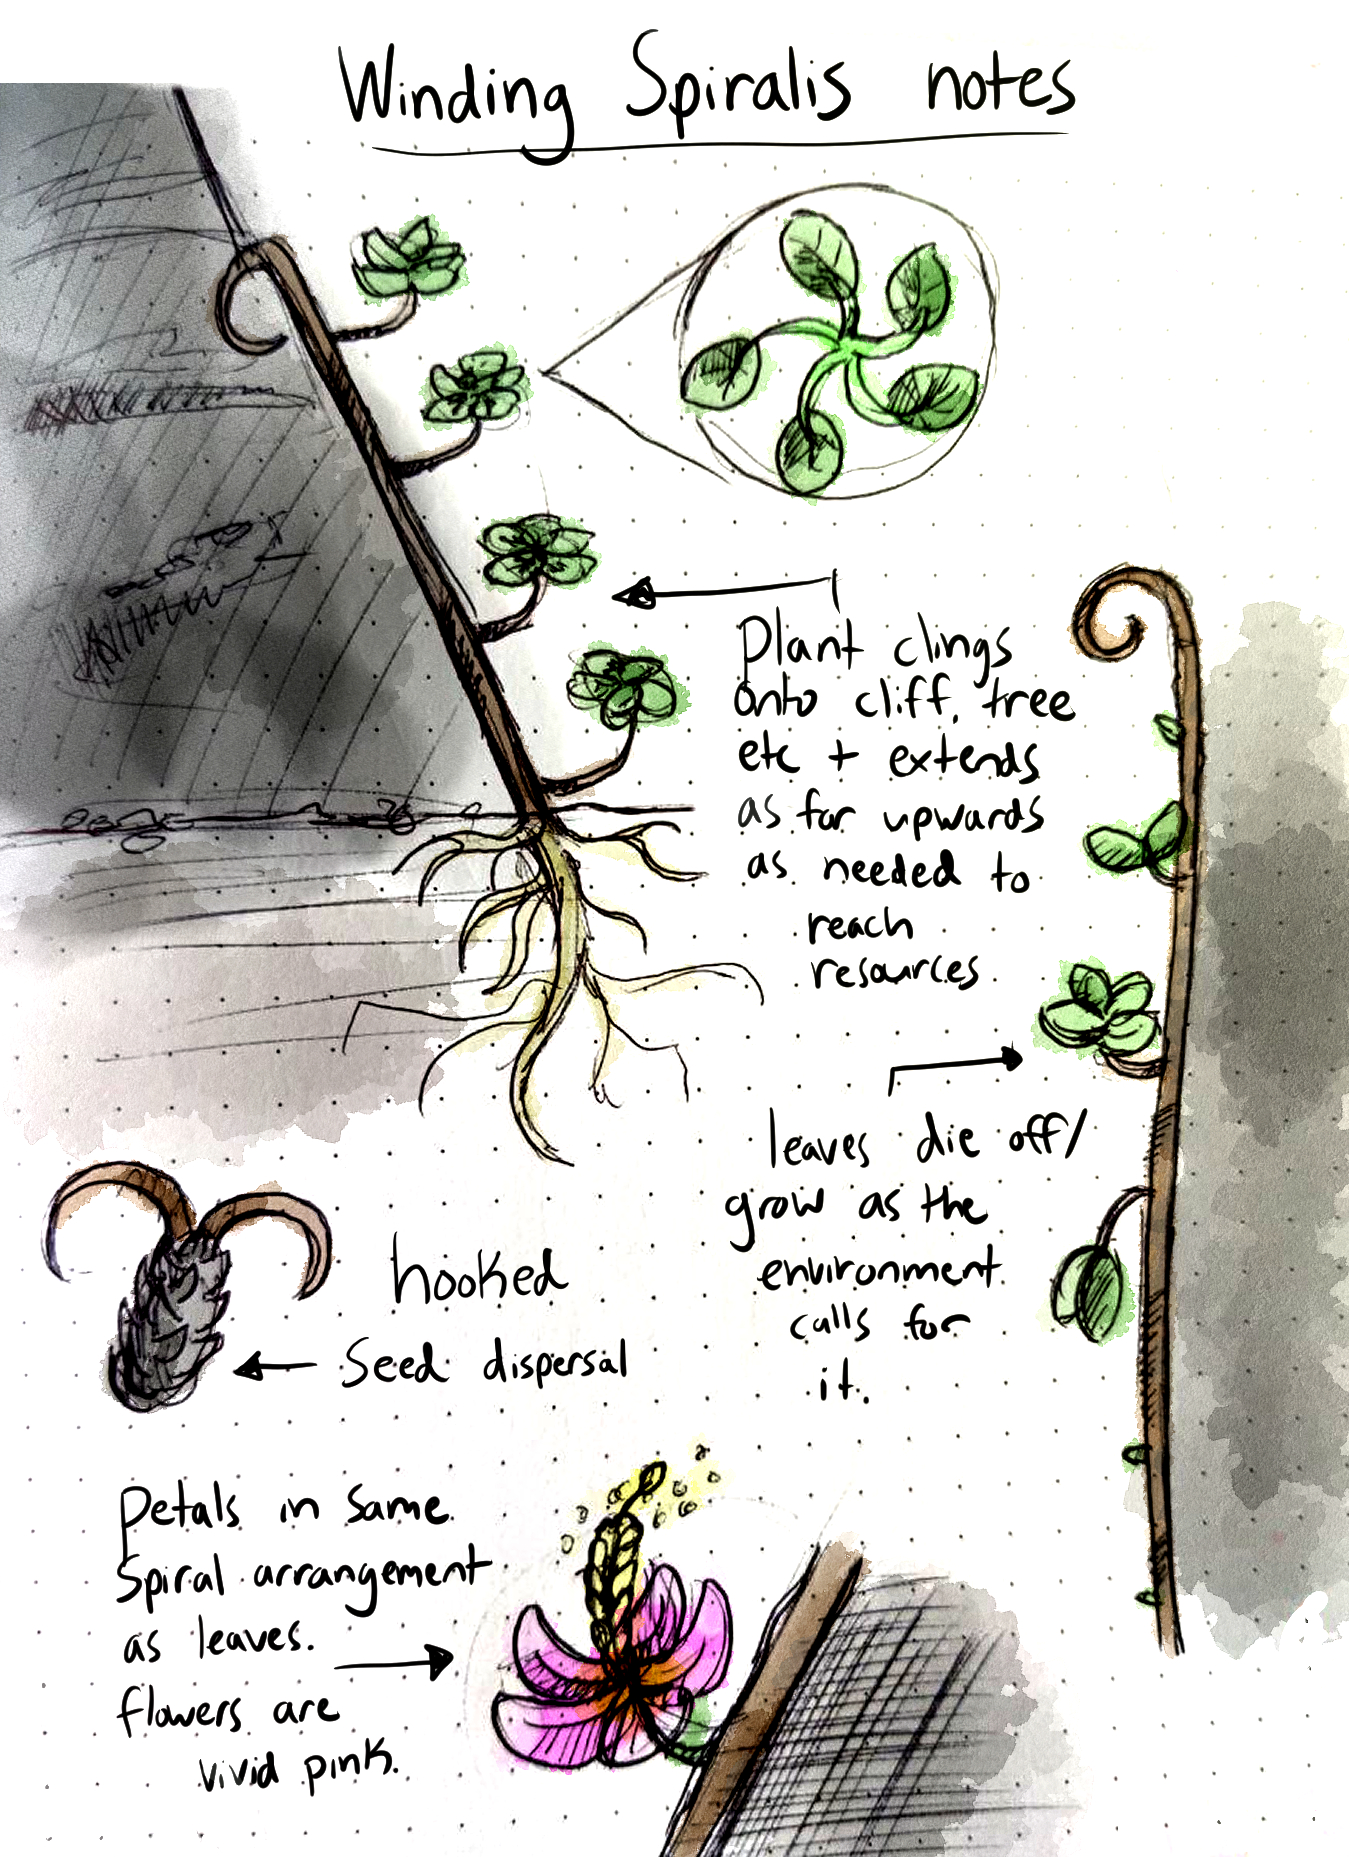 Winding Spiralis notes
Plant clings
onto cliff, tree
etc + extends
as far upwards
as needed to
reach
resources
leaves die off/
grow as the
environment
calls for
it.
hooked
seed dispersal
Petals in same
spiral arrangement
as leaves.
flowers are
vivid pink.